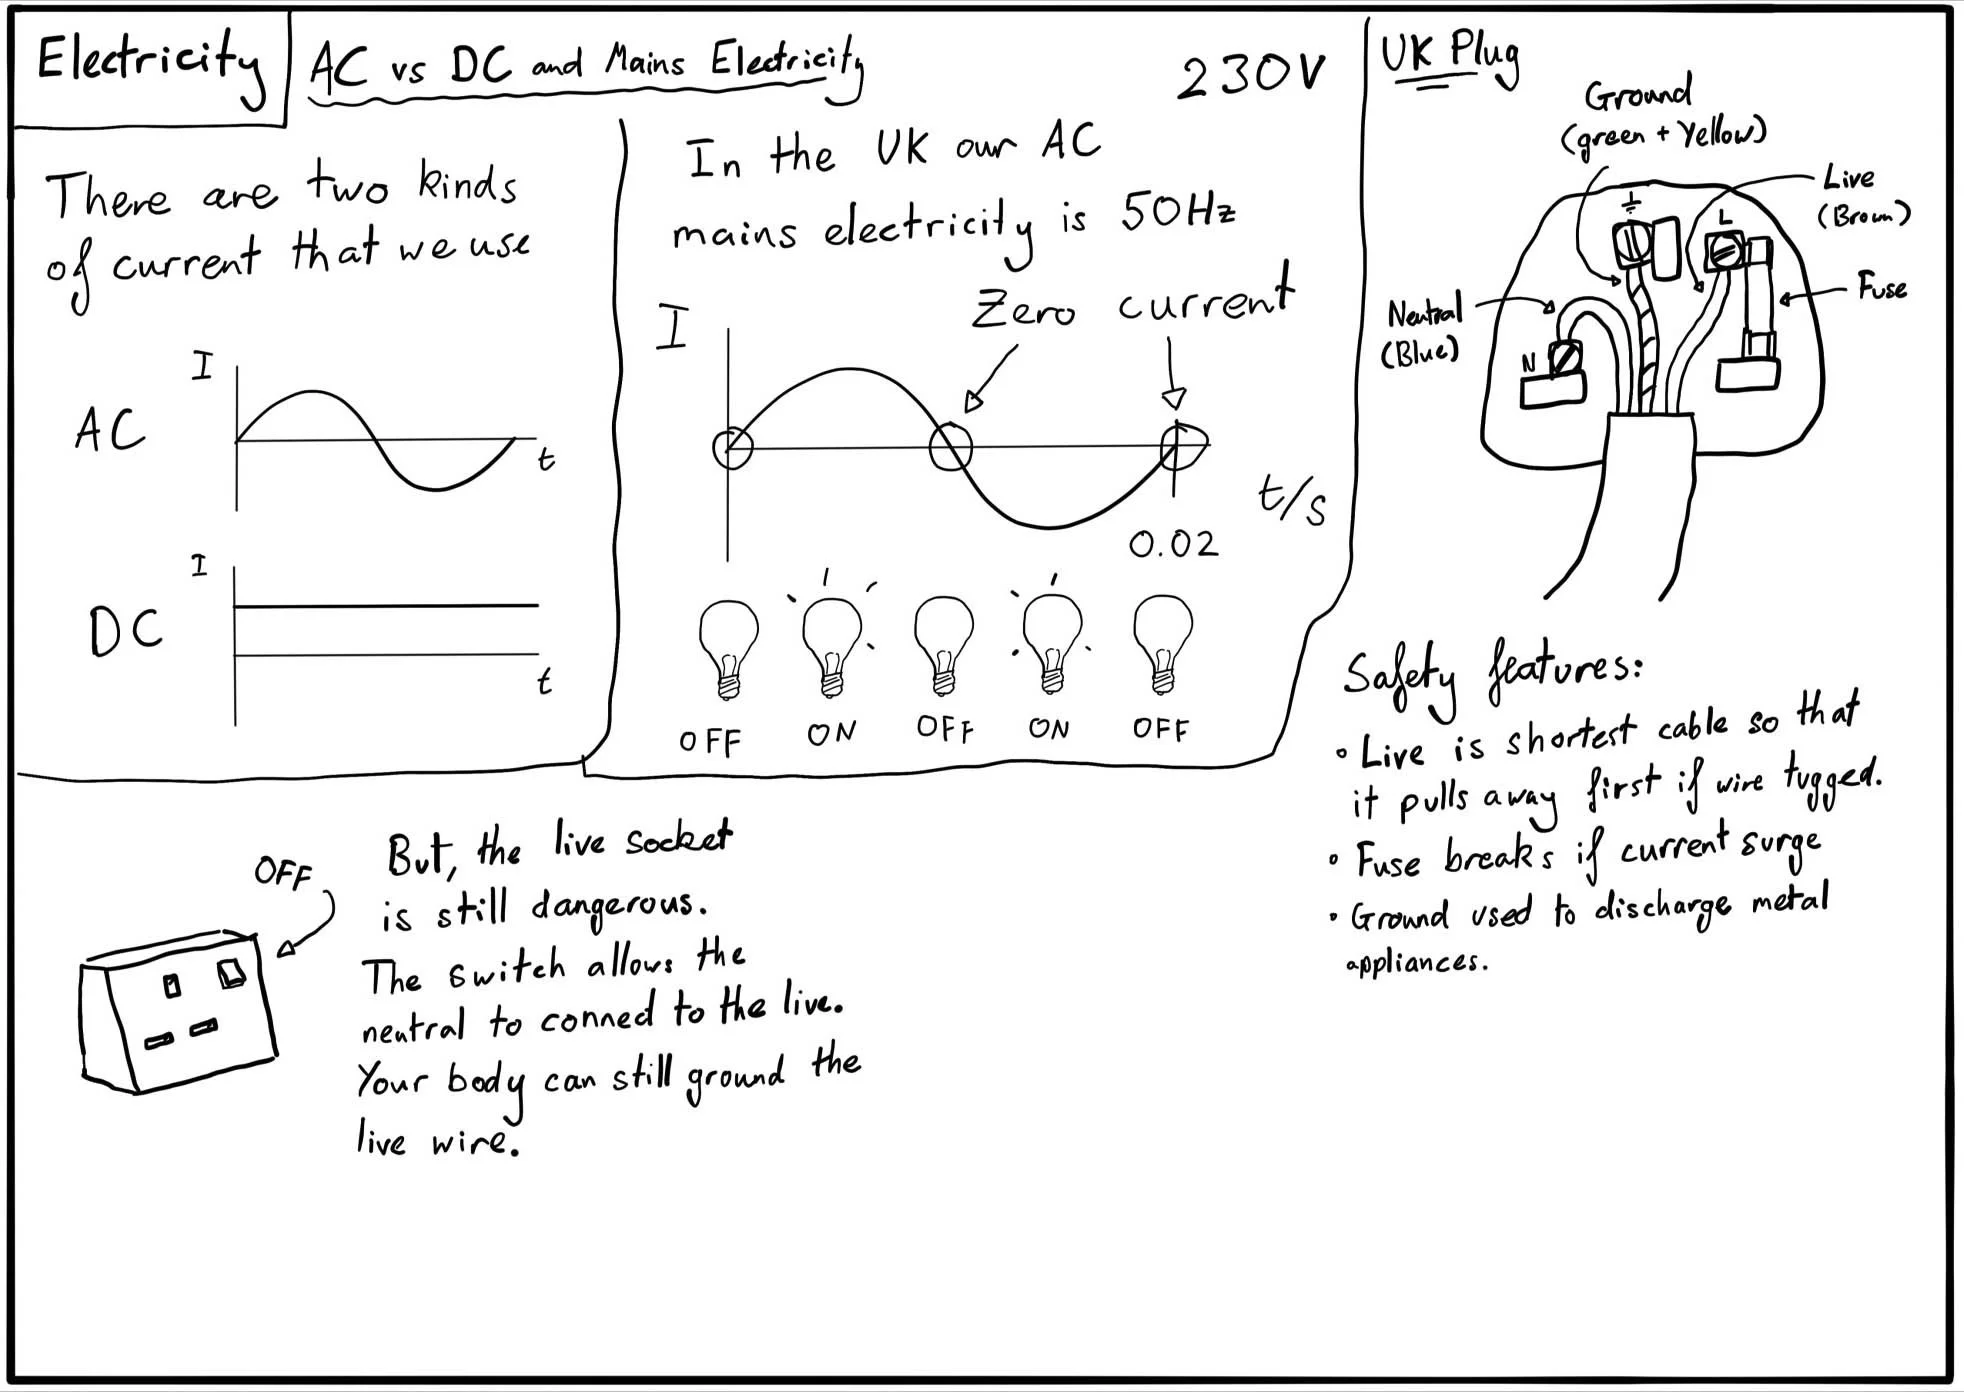 Electricity
AC vs DC and Mains Electricity
230V
There are two kinds
of current that we use
AC
I
t
DC
I
t
In the UK our AC
mains electricity is 50Hz
Zero current
I
t/s
0.02
OFF
ON
OFF
ON
OFF
UK Plug
Ground
(green + Yellow)
Live
(Brown)
Fuse
Neutral
(Blue)
N
L
Safety features:
• Live is shortest cable so that
it pulls away first if wire tugged.
• Fuse breaks if current surge
• Ground used to discharge metal
appliances.
OFF
But, the live socket
is still dangerous.
The switch allows the
neutral to conned to the live.
Your body can still ground the
live wire.